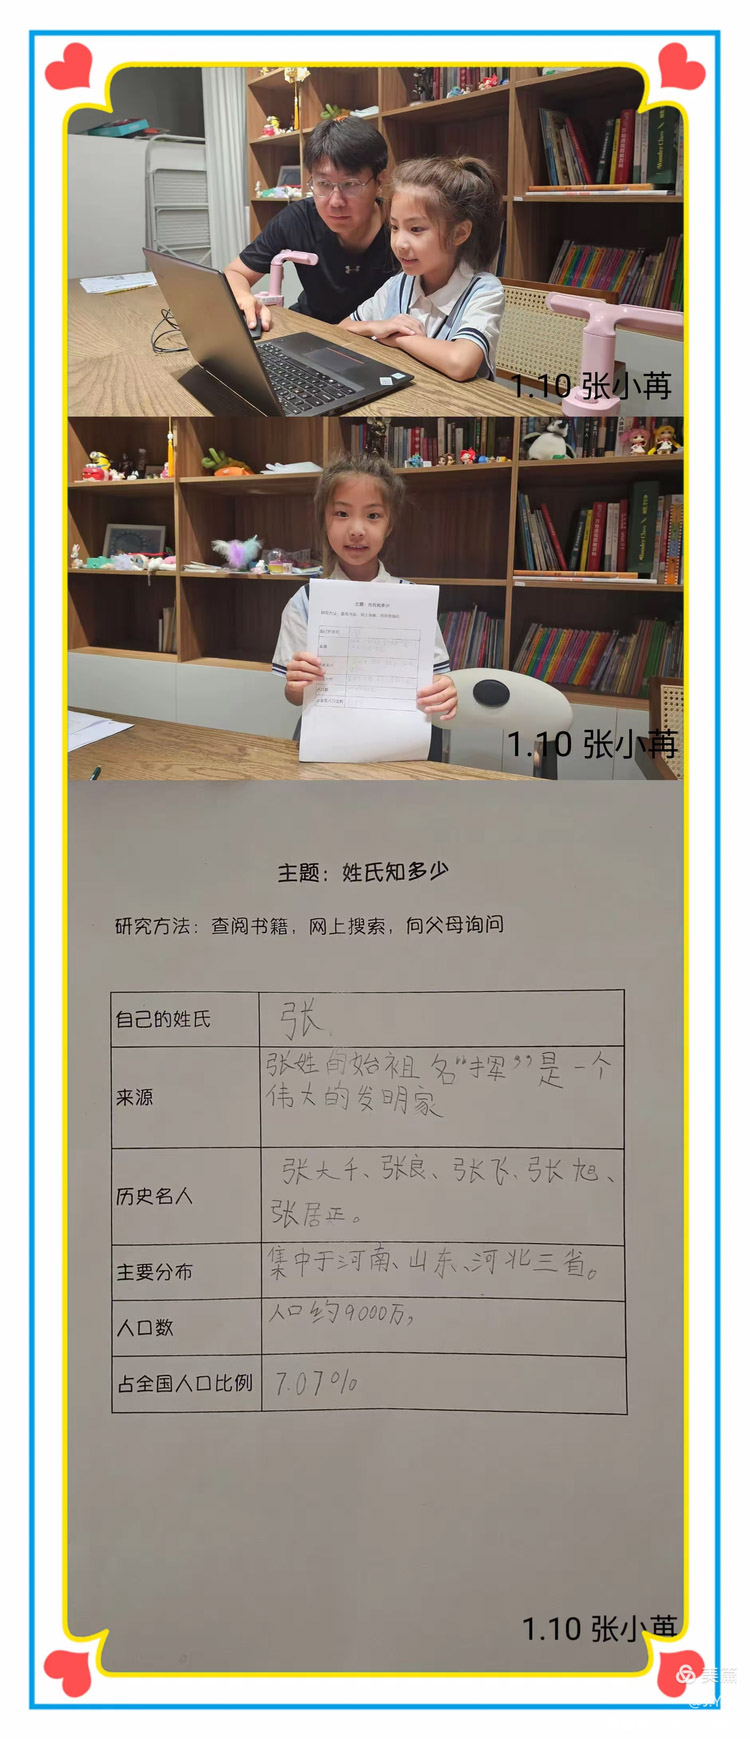 1.10 张小苒
主题：姓氏知多少
1.10 张小苒
主题：姓氏知多少
研究方法：查阅书籍，网上搜索，向父母询问
自己的姓氏
张
来源
张姓的始祖名“挥”是一个
伟大的发明家
历史名人
张大千、张良、张飞、张旭、
张居正。
主要分布
集中于河南、山东、河北三省。
人口数
人口约9000万，
占全国人口比例
7.07%
1.10 张小苒
美篇